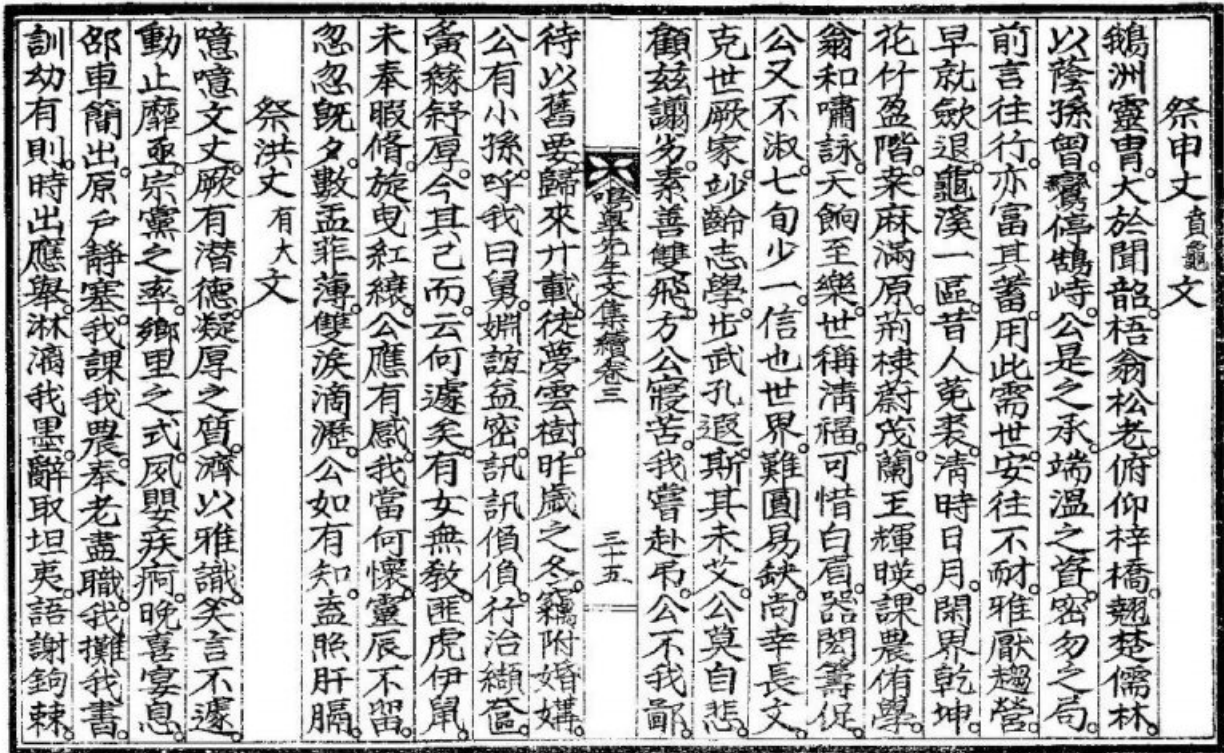 祭申丈賁龜文
鵝洲靈冑大於聞韶梧翁松老俯仰梓橋翹楚儒林
以蔭孫曾鸞停鵠峙公是之承端溫之資密勿之局
前言往行亦富其蓄用此需世安往不耐雅厭趨營
早就斂退龜溪一區昔人菟裘淸時日月閑界乾坤
花竹盈階桒麻滿原荊棣蔚茂蘭玉輝暎課農侑學
翁和嘯詠天餉至樂世稱淸福可惜白眉器閎籌促
公又不淑七旬少一信也世界難圓易缺尙幸長文
克世厥家妙齡志學步武孔遐斯其未艾公莫自悲
顧玆謭劣素善雙飛方公寢苦我嘗赴吊公不我鄙
先生文集續卷三
三十五
待以舊要歸來廾載徒夢雲樹昨歲之冬竊附婚媾
公有小孫呼我曰舅婣誼益密訊訊偩偩行治纈奩
夤緣紓厚今其已而云何遽矣有女無敎匪虎伊鼠
未奉暇脩旋曳紅纕公應有感我當何懷靈辰不留
忽忽旣夕數盂菲薄雙淚滴瀝公如有知盍照肝膈
祭洪丈有大文
噫噫文丈厥有潛德凝厚之質濟以雅識矣言不遽
動止靡亟宗黨之率鄕里之式夙嬰疾疴晩喜宴息
郃車簡出原戶靜塞我課我農奉老盡職我攤我書
訓幼有則時出應擧淋漓我墨辭取坦夷語謝鉤棘